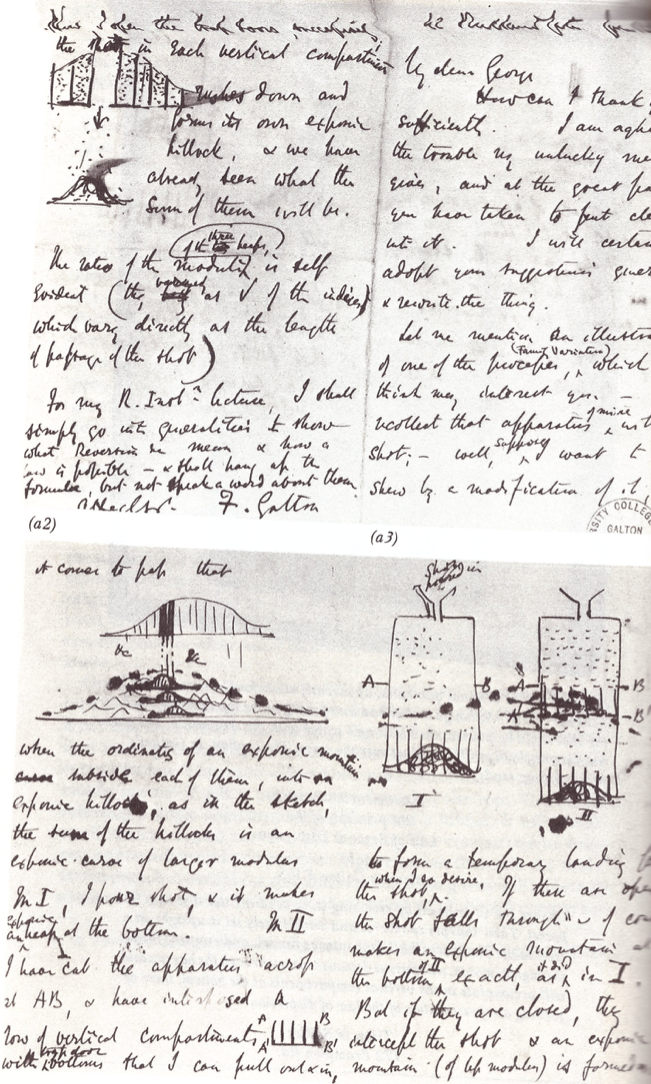 Now I open the trap doors successively,
the shot in each vertical compartment
rushes down and
forms its own exponl
hillock, & we have
already seen what the
sum of them will be.
of the three heaps,
The ratio of the moduli is self
evident (they varied as √ of the indices
which vary directly as the length
of passage of the shot)
For my R. Instn Lecture, I shall
simply go into generalities to show
what Reversion means & how a
law is possible – & shall hang up the
formulae, but not speak a word about them.
F. Galton
(a2)
My dear George
How can I thank
sufficiently. I am
the trouble my unlucky
gives, and at the great
you have taken to
into it. I will
adopt your suggestions
& rewrite the thing.
Let me mention an
of one of the processes, (Family Variation) which
think may interest you. –
recollect that apparatus of mine
shot; – well, supposing I want to
shew by a modification of it,
GALTON
(a3)
it comes to pass that
Shot is poured in
A B
A B
A' B'
I
II
when the ordinates of an exponl mountain
subside each of them, into an
exponl hillock, as in the sketch
the sum of the hillocks is an
exponl curve of larger modulus
In I, I pour shot & it makes
an exponl heap at the bottom. In II
I have cut the apparatus across
at AB, & have interposed a
row of vertical compartments, A A' B B'
with trap door bottoms that I can pull out & in,
to form a temporary landing
the shot, when I so desire. If these are
the shot falls through &
makes an exponl mountain
the bottom of II exactly as it did in I.
But if they are closed, they
intercept the shot & an exponl
mountain (of less modulus) is formed